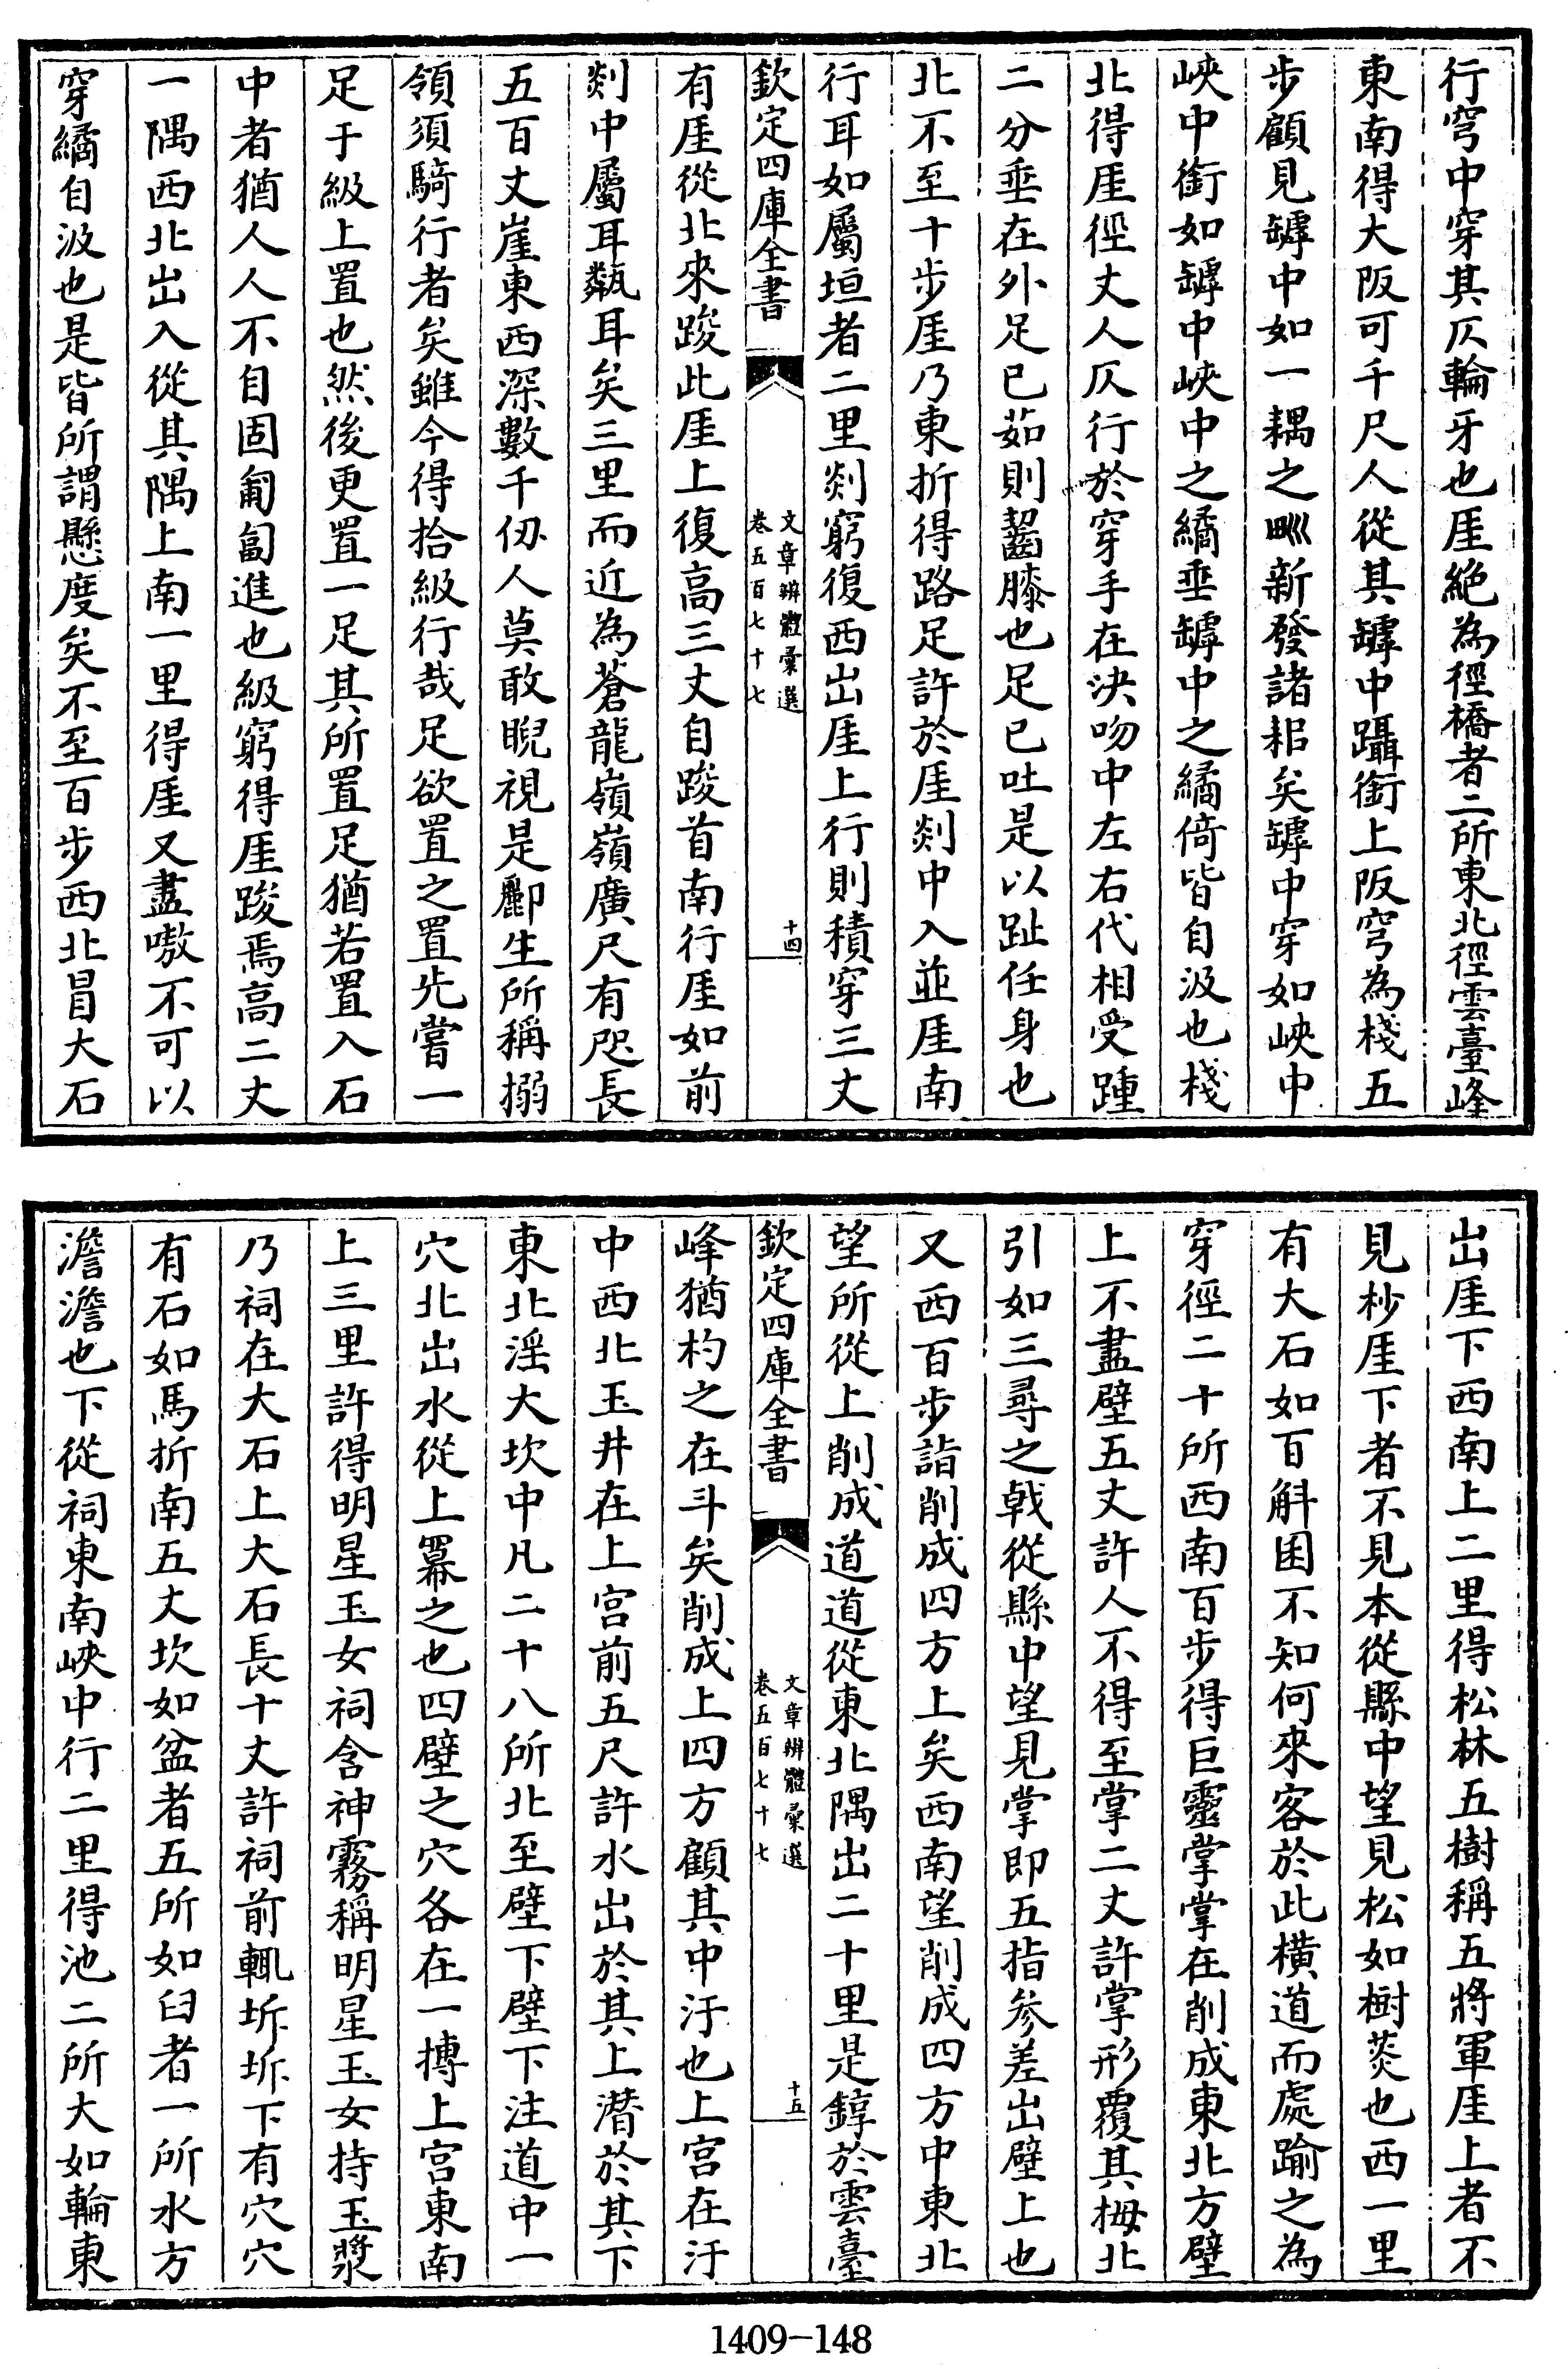 行穹中穿其仄輪牙也厓絶為徑橋者二所東北徑雲臺峰
東南得大阪可千尺人從其罅中躡銜上阪穹為棧五
步顧見罅中如一耦之甽新發諸耜矣罅中穿如峽中
峽中銜如罅中峽中之繘垂罅中之繘倚皆自汲也棧
北得厓徑丈人仄行於穿手在决吻中左右代相受踵
二分垂在外足已茹則齧膝也足已吐是以趾任身也
北不至十步厓乃東折得路足許於厓剡中入並厓南
行耳如屬垣者二里剡窮復西出厓上行則積穿三丈
欽定四庫全書
文章辨體彙選
卷五百七十七
十四
有厓從北來踆此厓上復高三丈自踆首南行厓如前
剡中屬耳甏耳矣三里而近為蒼龍嶺嶺廣尺有咫長
五百丈崖東西深數千仭人莫敢睨視是酈生所稱搦
領須騎行者矣雖今得拾級行哉足欲置之置先嘗一
足于級上置也然後更置一足其所置足猶若置入石
中者猶人人不自固匍匐進也級窮得厓踆焉高二丈
一隅西北出入從其隅上南一里得厓又盡嗷不可以
穿繘自汲也是皆所謂懸度矣不至百步西北冒大石
出厓下西南上二里得松林五樹稱五將軍厓上者不
見杪厓下者不見本從縣中望見松如樹菼也西一里
有大石如百斛囷不知何來客於此橫道而處踰之為
穿徑二十所西南百步得巨靈掌掌在削成東北方壁
上不盡壁五丈許人不得至掌二丈許掌形覆其拇北
引如三尋之戟從縣中望見掌即五指參差出壁上也
又西百步詣削成四方上矣西南望削成四方中東北
望所從上削成道道從東北隅出二十里是錞於雲臺
欽定四庫全書
文章辨體彙選
卷五百七十七
十五
峰猶杓之在斗矣削成上四方顧其中汙也上宫在汙
中西北玉井在上宫前五尺許水出於其上潛於其下
東北淫大坎中凡二十八所北至壁下壁下注道中一
穴北出水從上羃之也四壁之穴各在一摶上宫東南
上三里許得明星玉女祠含神霧稱明星玉女持玉漿
乃祠在大石上大石長十丈許祠前輒坼坼下有穴穴
有石如馬折南五丈坎如盆者五所如臼者一所水方
澹澹也下從祠東南峽中行二里得池二所大如輪東
1409-148